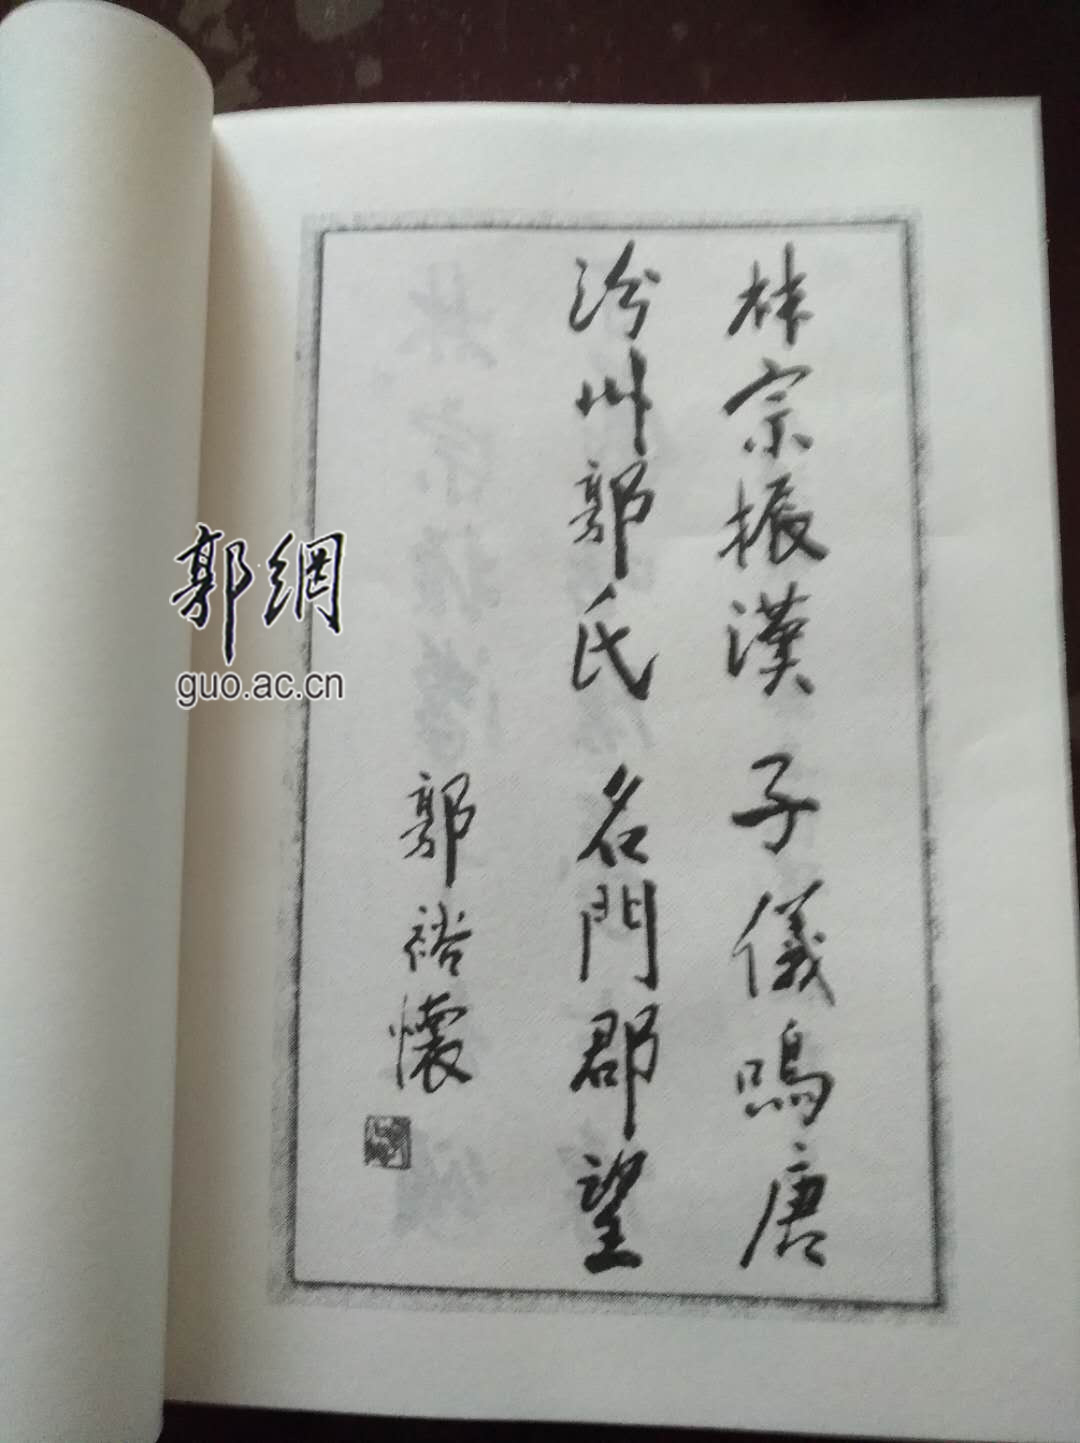 林宗振漢 子儀鳴唐
汾州郭氏 名門郡望
郭裕懷
郭網
guo.ac.cn